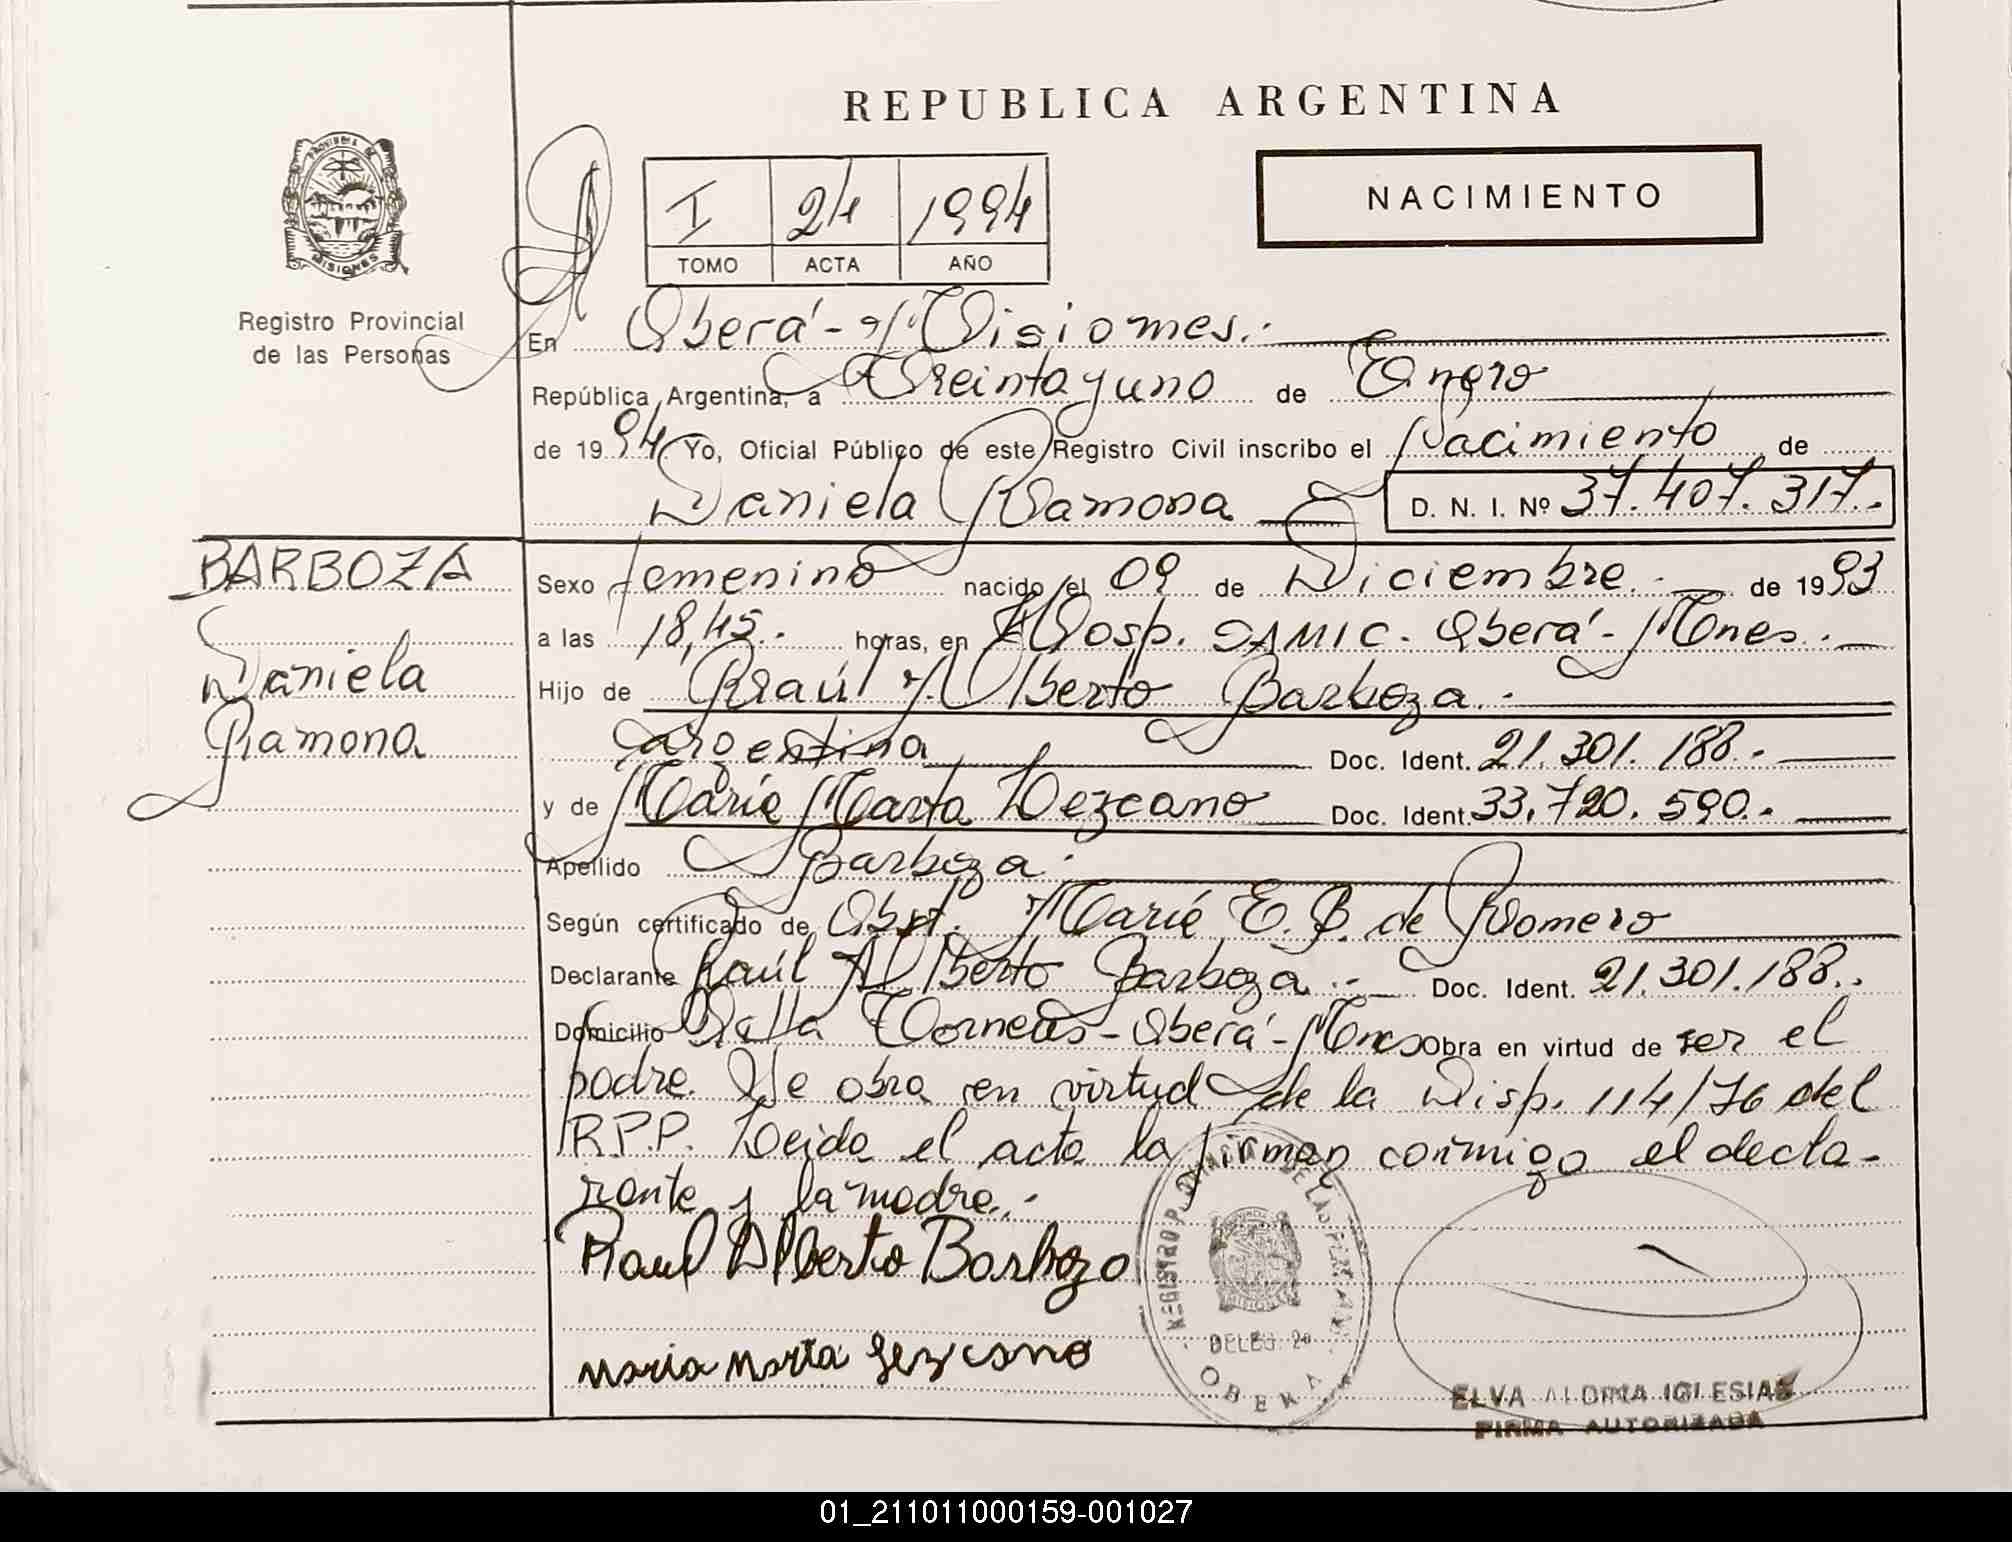 REPUBLICA ARGENTINA
NACIMIENTO
I 24 1994
TOMO ACTA AÑO
PROVINCIA DE
MISIONES
Registro Provincial
de las Personas
En Oberá - Misiones.-
República Argentina, a Treinta y uno de Enero
de 1994 Yo, Oficial Público de este Registro Civil inscribo el Nacimiento de
Daniela Ramona D. N. I. Nº 37.407.317.-
BARBOZA
Daniela
Ramona
Sexo femenino nacido el 09 de Diciembre.- de 1993
a las 18,45.- horas, en Hosp. SAMIC - Oberá - Mnes.-
Hijo de Raúl Alberto Barboza.-
argentina Doc. Ident. 21.301.188.-
y de María Marta Lezcano Doc. Ident. 33.720.590.-
Apellido Barboza.-
Según certificado de Obst. María E. B. de Romero
Declarante Raúl Alberto Barboza.- Doc. Ident. 21.301.188.-
Domicilio Oberá - Mnes Obra en virtud de ser el
padre. Se obra en virtud de la Disp. 114/76 del
R.P.P. Leida el acta la firman conmigo el decla-
rante y la madre.-
Raul Alberto Barbozo
maria marta Lezcano
REGISTRO DE LAS
MISIONES
DELEG.
OBERA
ELVA IGLESIAS
FIRMA AUTORIZADA
01_211011000159-001027